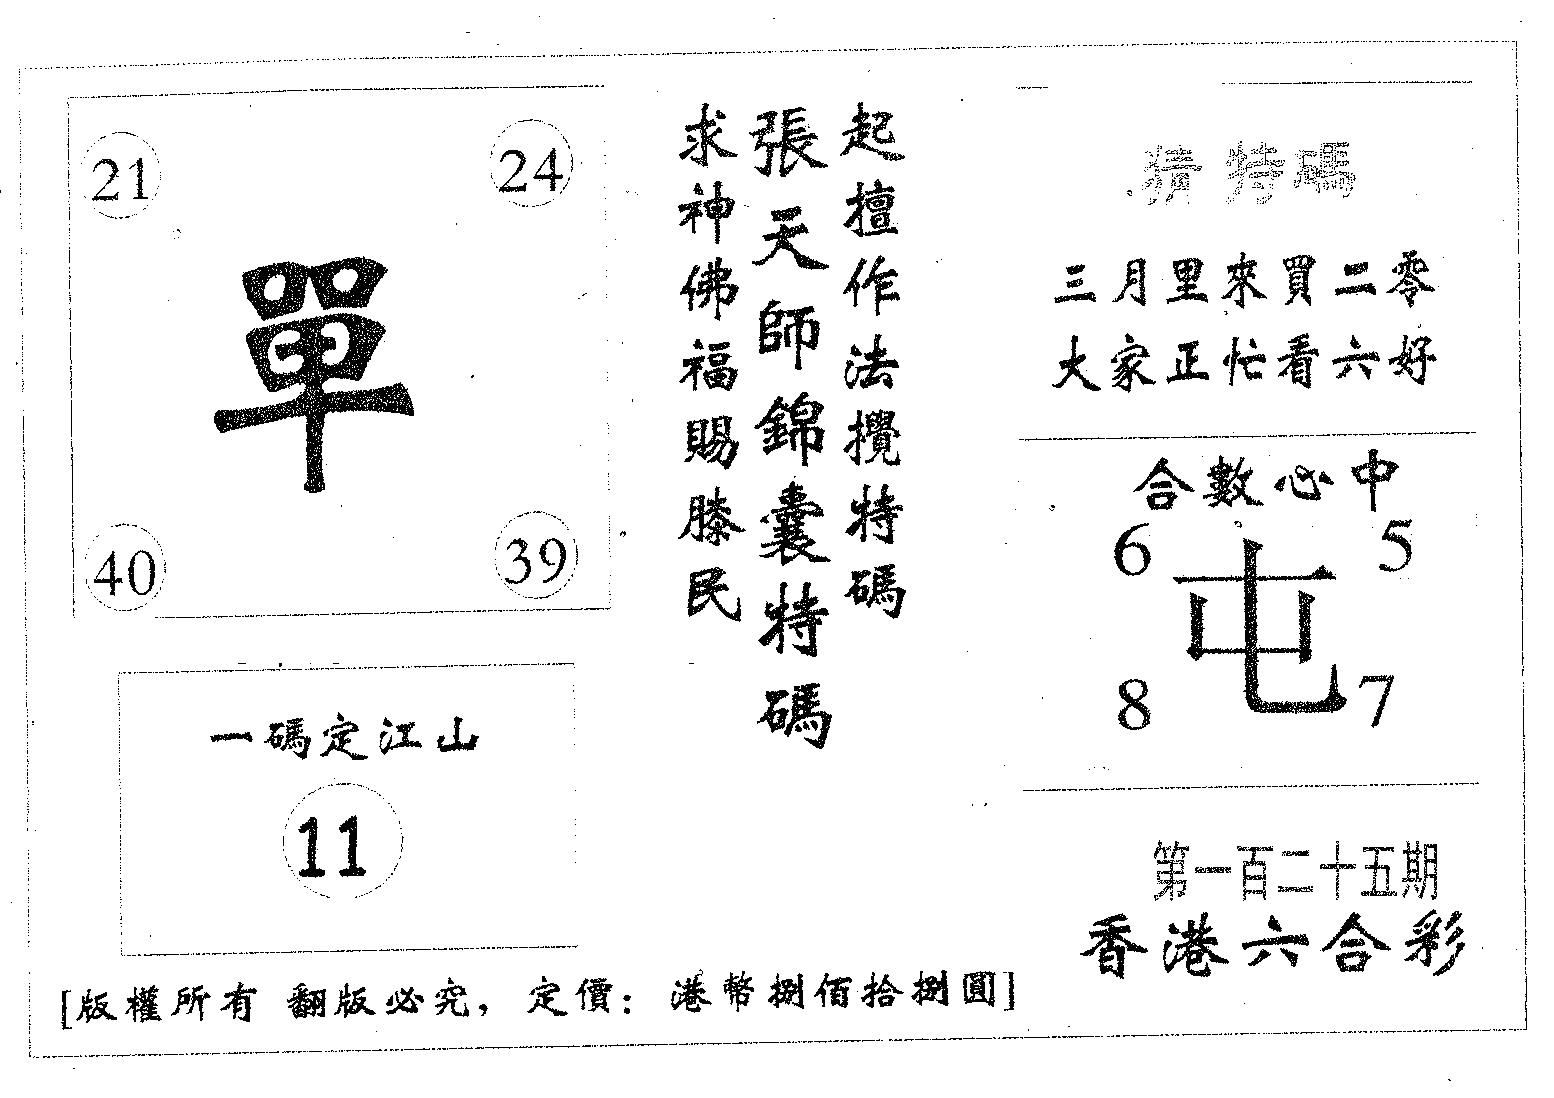 21
24
單
40
39
一碼定江山
11
起擅作法攪特碼
張天師錦囊特碼
求神佛福賜滕民
猜特碼
三月里來買二零
大家正忙看六好
合數必中
6
5
屯
8
7
第一百二十五期
香港六合彩
[版權所有 翻版必究，定價：港幣捌佰拾捌圓]